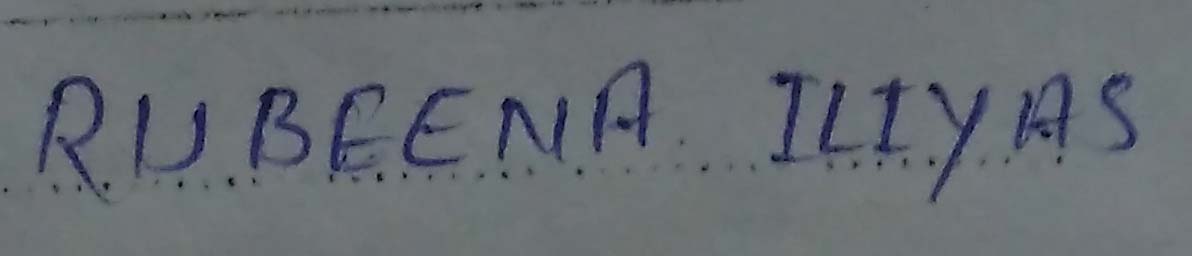 RUBEENA ILIYAS